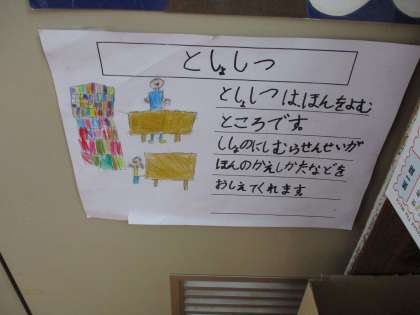 としょしつ
としょしつはほんをよむ
ところです。
ししょのにしむらせんせいが
ほんのかえしかたなどを
おしえてくれます